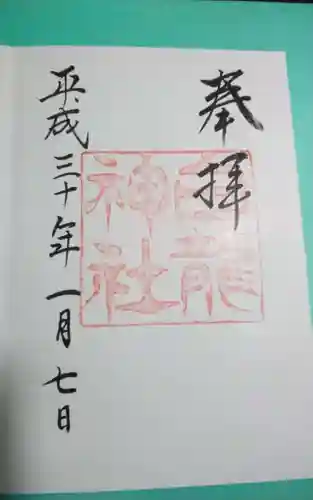 奉拝
龍
神社
平成三十年一月七日